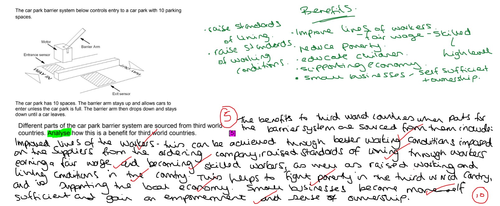 The car park barrier system below controls entry to a car park with 10 parking
spaces.
Motor
Barrier Arm
Entrance sensor
Exit sensor
The car park has 10 spaces. The barrier arm stays up and allows cars to
enter unless the car park is full. The barrier arm then drops down and stays
down until a car leaves.
Different parts of the car park barrier system are sourced from third world
countries. Analyse how this is a benefit for third world countries.
Benefits.
• raise standards
of living.
• raise standards
of working
conditions.
• Improve lives of workers
- fair wage - skilled
• reduce poverty.
• educate children.
• supporting economy
• small businesses - self sufficient
+ ownership.
5
The benefits to third world countries when parts for
the barrier system are sourced from them include:
Improved lives of the workers - this can be achieved through better working conditions imposed
on the suppliers from the ordering company, raised standards of living through workers
earning a fair wage and becoming skilled workers, as well as raised working and
living conditions in the country. This helps to fight poverty in the third world country,
and is supporting the local economy. Small businesses become more self
sufficient and gain an empowerment and sense of ownership.
10